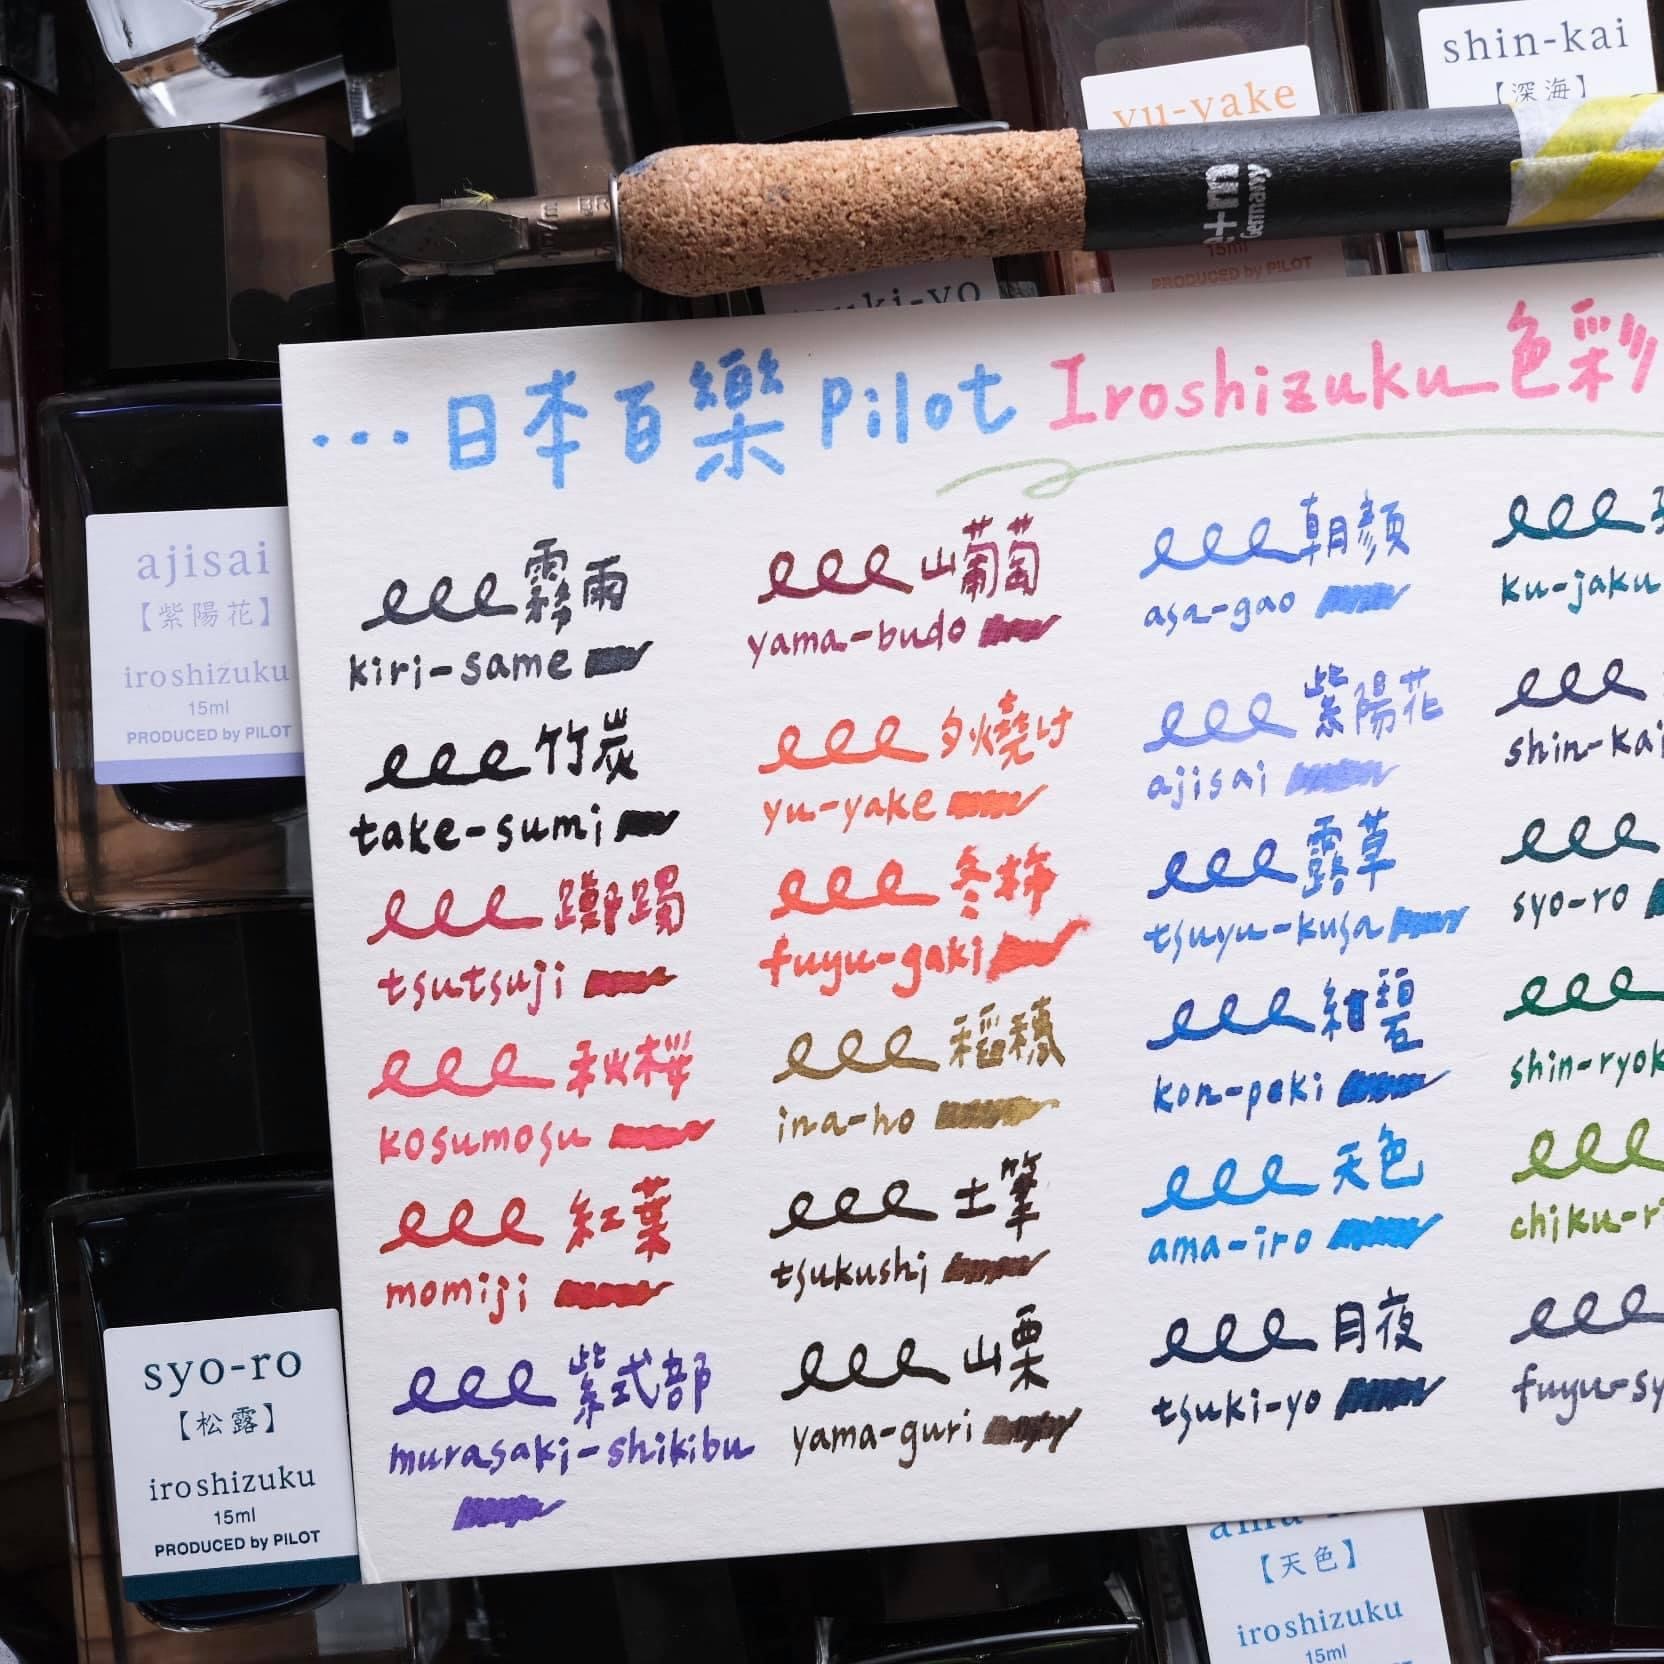 shin-kai
【深海】
yu-yake
e+m
Germany
15ml
PRODUCED by PILOT
日本百樂 Pilot Iroshizuku 色彩
ajisai
【紫陽花】
iroshizuku
15ml
PRODUCED by PILOT
syo-ro
【松露】
iroshizuku
15ml
PRODUCED by PILOT
霧雨
kiri-same
竹炭
take-sumi
躑躅
tsutsuji
秋桜
kosumosu
紅葉
momiji
紫式部
murasaki-shikibu
山葡萄
yama-budo
夕燒け
yu-yake
冬柿
fuyu-gaki
稲穂
ina-ho
土筆
tsukushi
山栗
yama-guri
朝顔
asa-gao
紫陽花
ajisai
露草
tsuyu-kusa
紺碧
kon-peki
天色
ama-iro
月夜
tsuki-yo
ku-jaku
shin-kai
syo-ro
shin-ryok
chiku-ri
fuyu-sy
【天色】
iroshizuku
15ml